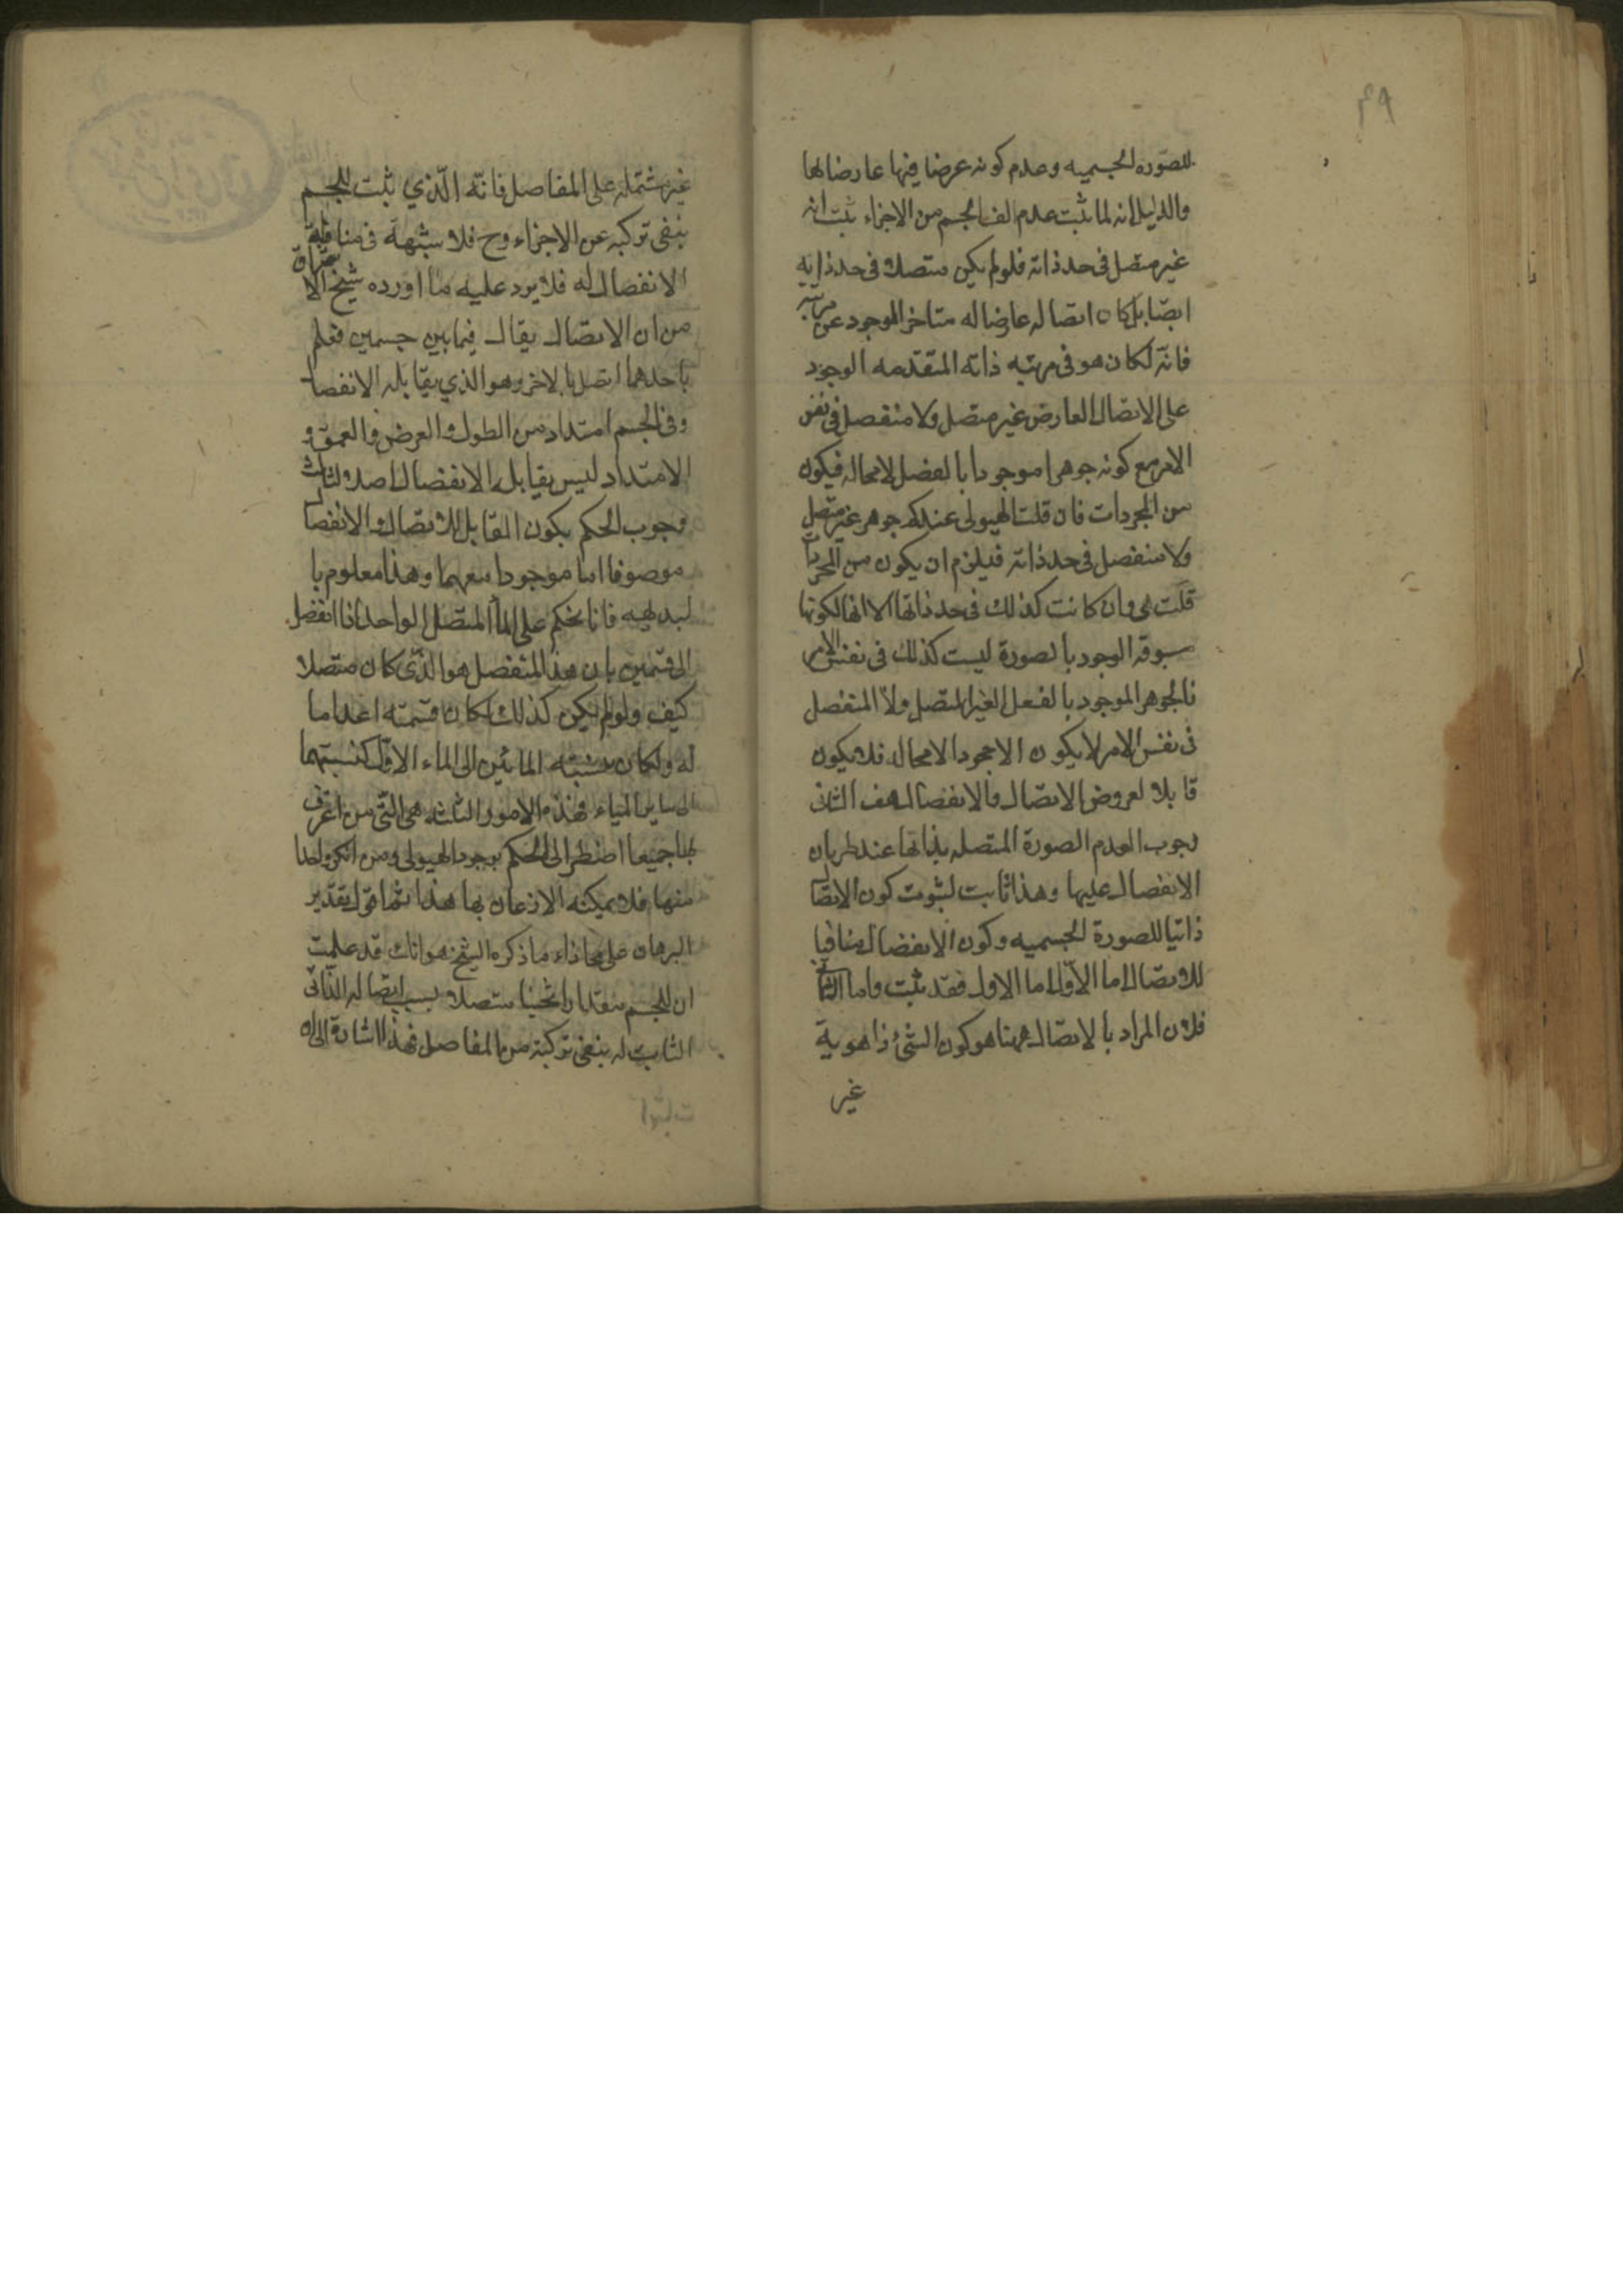 ٤٩
للصوره الجسميه وعدم كونه عرضا فيها عارضا لها
والدليل انه لما ثبت عدم تالف الجسم من الاجزاء ثبت انه
غير منفصل فى حد ذاته فلو لم يكن متصلا فى حد ذاته
ايضا بل كان اتصاله عارضا له متاخر الوجود عن مرتبته
فانه لكان هو فى مرتبه ذاته المتقدمه الوجود
على الاتصال العارض غير متصل ولا منفصل فى نفس
الامر مع كونه جوهرا موجودا بالفعل لا محاله فيكون
من المجردات فان قلت الهيولى عندكم جوهر غير متصل
ولا منفصل فى حد ذاته فيلزم ان يكون من المجردات
قلت هى وان كانت كذلك فى حد ذاتها الا انها لكونها
مسبوقه الوجود بالصورة ليست كذلك فى نفس الامر
فالجوهر الموجود بالفعل الغير المتصل ولا المنفصل
فى نفس الامر لا يكون الا مجردا لا محاله فلا يكون
قابلا لعروض الاتصال والانفصال هف الثانى
وجوب العدم الصورة المتصله بذاتها عند طريان
الانفصال عليها وهذا ثابت لثبوت كون الاتصال
ذاتيا للصورة الجسميه وكون الانفصال منافيا
للاتصال اما الاول اما الاول فقد ثبت واما الثانى
فلان المراد بالاتصال ههنا هو كون الشئ ذا هوية
غير
غير مشتمله على المفاصل فانه الذي ثبت للجسم
بنفى تركبه عن الاجزاء وح فلا شبهة فى منافاة
الانفصال له فلا يرد عليه ما اورده شيخ الاشراق
من ان الاتصال يقال فيما بين جسمين فعلم
باحدهما اتصل بالاخر وهو الذي يقابله الانفصال
وفى الجسم امتداد من الطول والعرض والعمق و
الامتداد ليس يقابله الانفصال اصلا والثالث
وجوب الحكم بكون القابل للاتصال والانفصال
موصوفا اما موجودا معهما وهذا معلوم با
لبديهيه فانا نحكم على الماء المتصل الواحد اذا انفصل
الى قسمين بان هذا المنفصل هو الذى كان متصلا
كيف ولو لم يكن كذلك لكان قسمته اعداما
له ولكان نسبته المائين الى الماء الاول كنسبتهما
الى ساير المياه فهذه الامور الثلثه هى التى من اعترف
بها جميعا اضطر الى الحكم بوجود الهيولى ومن انكر واحدا
منها فلا يمكنه الاذعان بها هذا ثم اقول تقدير
البرهان على محاذاه ما ذكره الشيخ هو انك قد علمت
ان للجسم مقدارا ثخينا متصلا بسبب اتصاله الذاتى
الثابت له بنفى تركبه من المفاصل فهذا اشارة الى ان